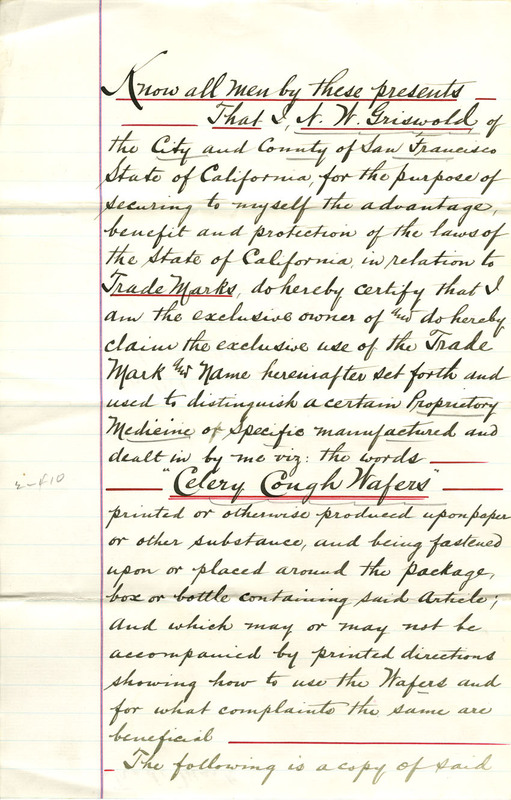 Know all men by these presents
That I, N. W. Griswold of
the City and County of San Francisco
State of California, for the purpose of
securing to myself the advantage,
benefit and protection of the laws of
the State of California, in relation to
Trade Marks, do hereby certify that I
am the exclusive owner of and do hereby
claim the exclusive use of the Trade
Mark and Name hereinafter set forth and
used to distinguish a certain Proprietory
Medicine or Specific manufactured and
dealt in by me viz: the words
"Celery Cough Wafers"
printed or otherwise produced upon paper
or other substance, and being fastened
upon or placed around the package,
box or bottle containing said Article;
And which may or may not be
accompanied by printed directions
showing how to use the Wafers and
for what complaints the same are
beneficial
The following is a copy of said